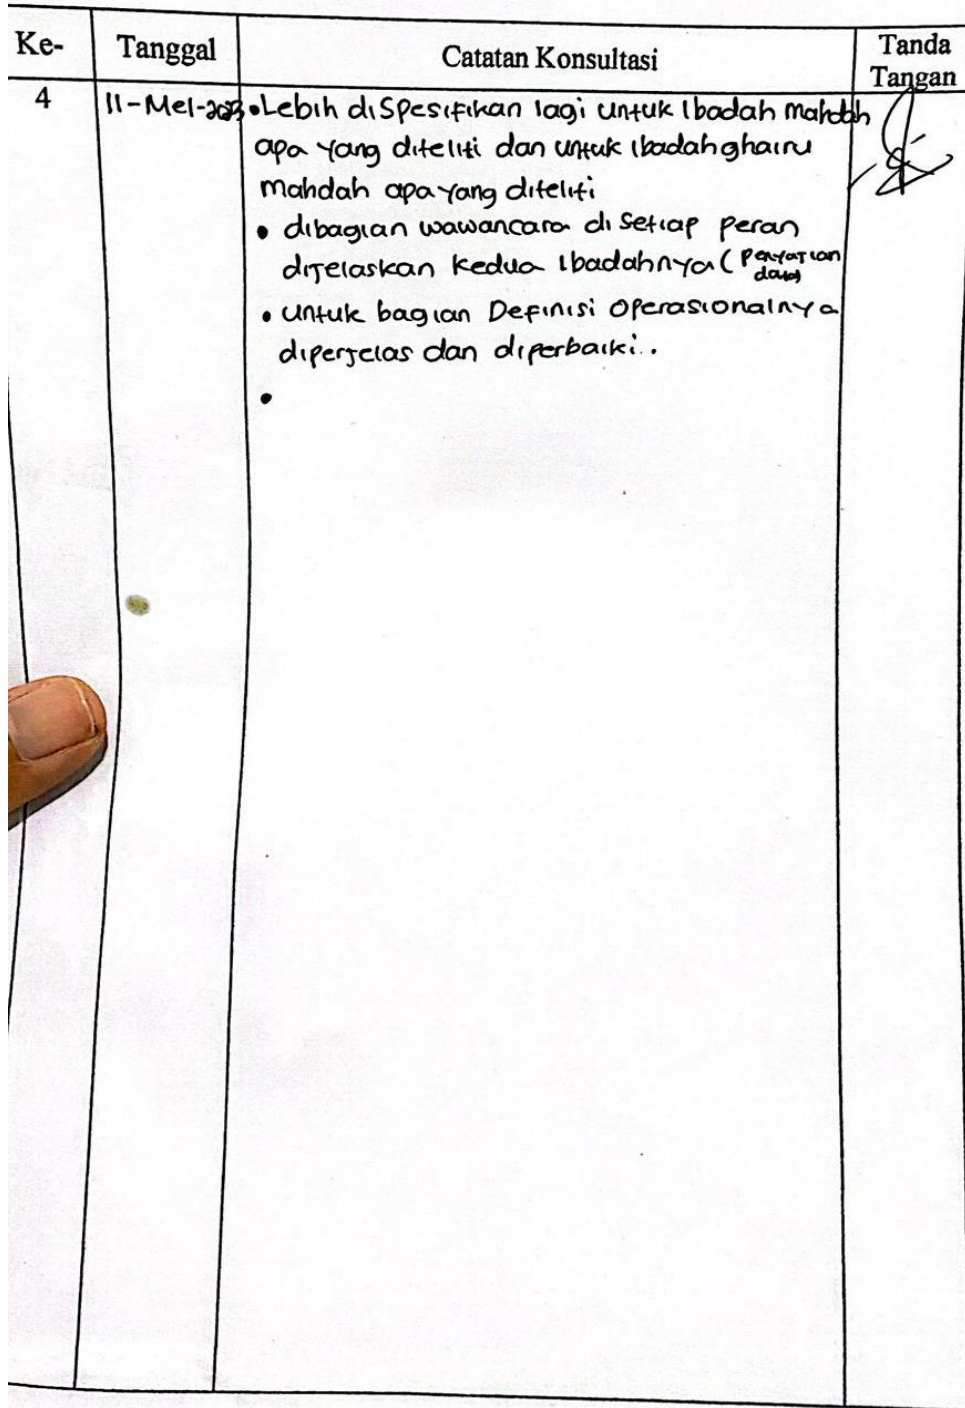 Ke- Tanggal Catatan Konsultasi Tanda Tangan
4 11-Mei-2023 • Lebih dispesifikan lagi untuk ibadah mahdah
apa yang diteliti dan untuk ibadah ghairu
mahdah apa yang diteliti
• dibagian wawancara di setiap peran
dijelaskan kedua ibadahnya (Penyajian
data)
• untuk bagian Definisi Operasionalnya
diperjelas dan diperbaiki..
•